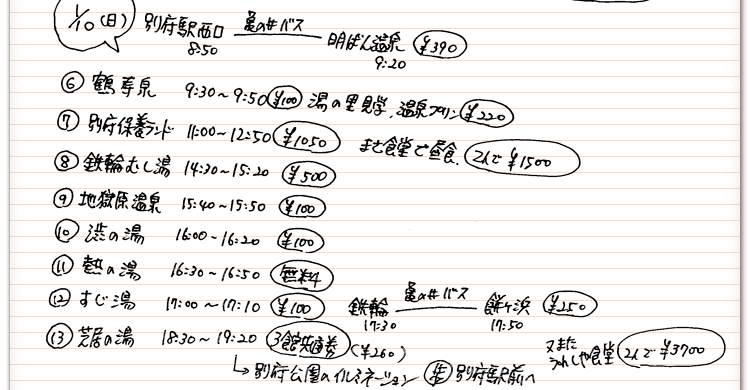 1/10(日) 別府駅西口 亀の井バス 明ばん温泉 ¥390
8:50 9:20
⑥ 鶴寿泉 9:30~9:50 ¥100 湯の里見学、温泉プリン ¥220
⑦ 別府保養ランド 11:00~12:50 ¥1050 ませ食堂で昼食、2人で¥1500
⑧ 鉄輪むし湯 14:30~15:20 ¥500
⑨ 地獄原温泉 15:40~15:50 ¥100
⑩ 渋の湯 16:00~16:20 ¥100
⑪ 熱の湯 16:30~16:50 無料
⑫ すじ湯 17:00~17:10 ¥100 鉄輪 亀の井バス 餅ヶ浜 ¥250
17:30 17:50
⑬ 芝居の湯 18:30~19:20 3館共通券 (¥260) 又また うれしや食堂 2人で¥3700
別府公園のイルミネーション 歩 別府駅前へ